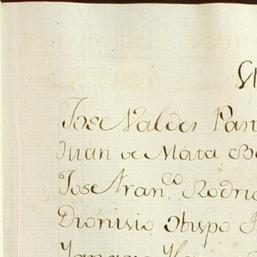 Jose Valdes Pan
Juan de Mata Ba
Jose Fran.co Rodri
Dionisio Obispo